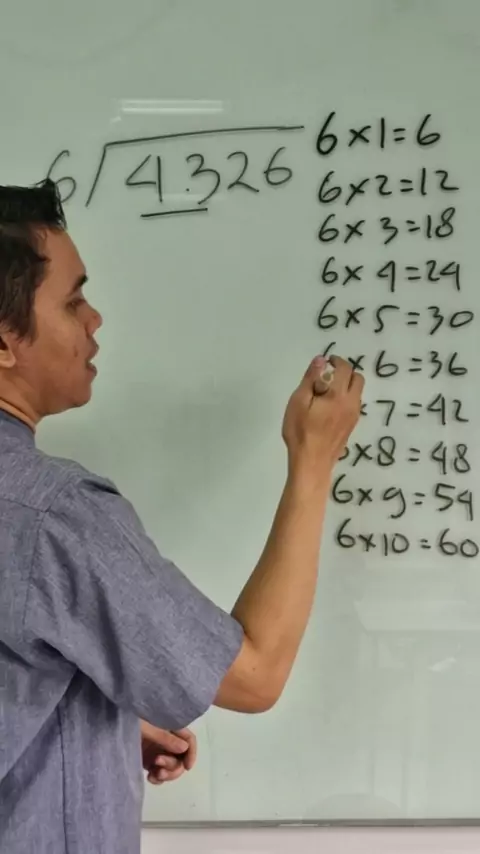 6 4326
6×1=6
6×2=12
6×3=18
6×4=24
6×5=30
6×6=36
×7=42
×8=48
6×9=54
6×10=60